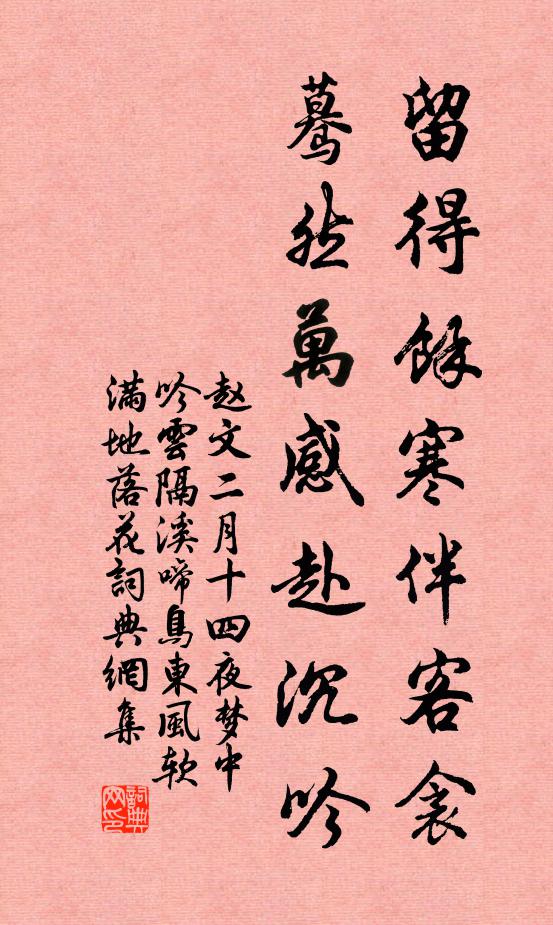 留得餘寒伴客衾
驀然萬感赴沉吟
赵文二月十四夜梦中
吟雲隔溪啼鳥東風软
满地落花詞典網集
詞典网印